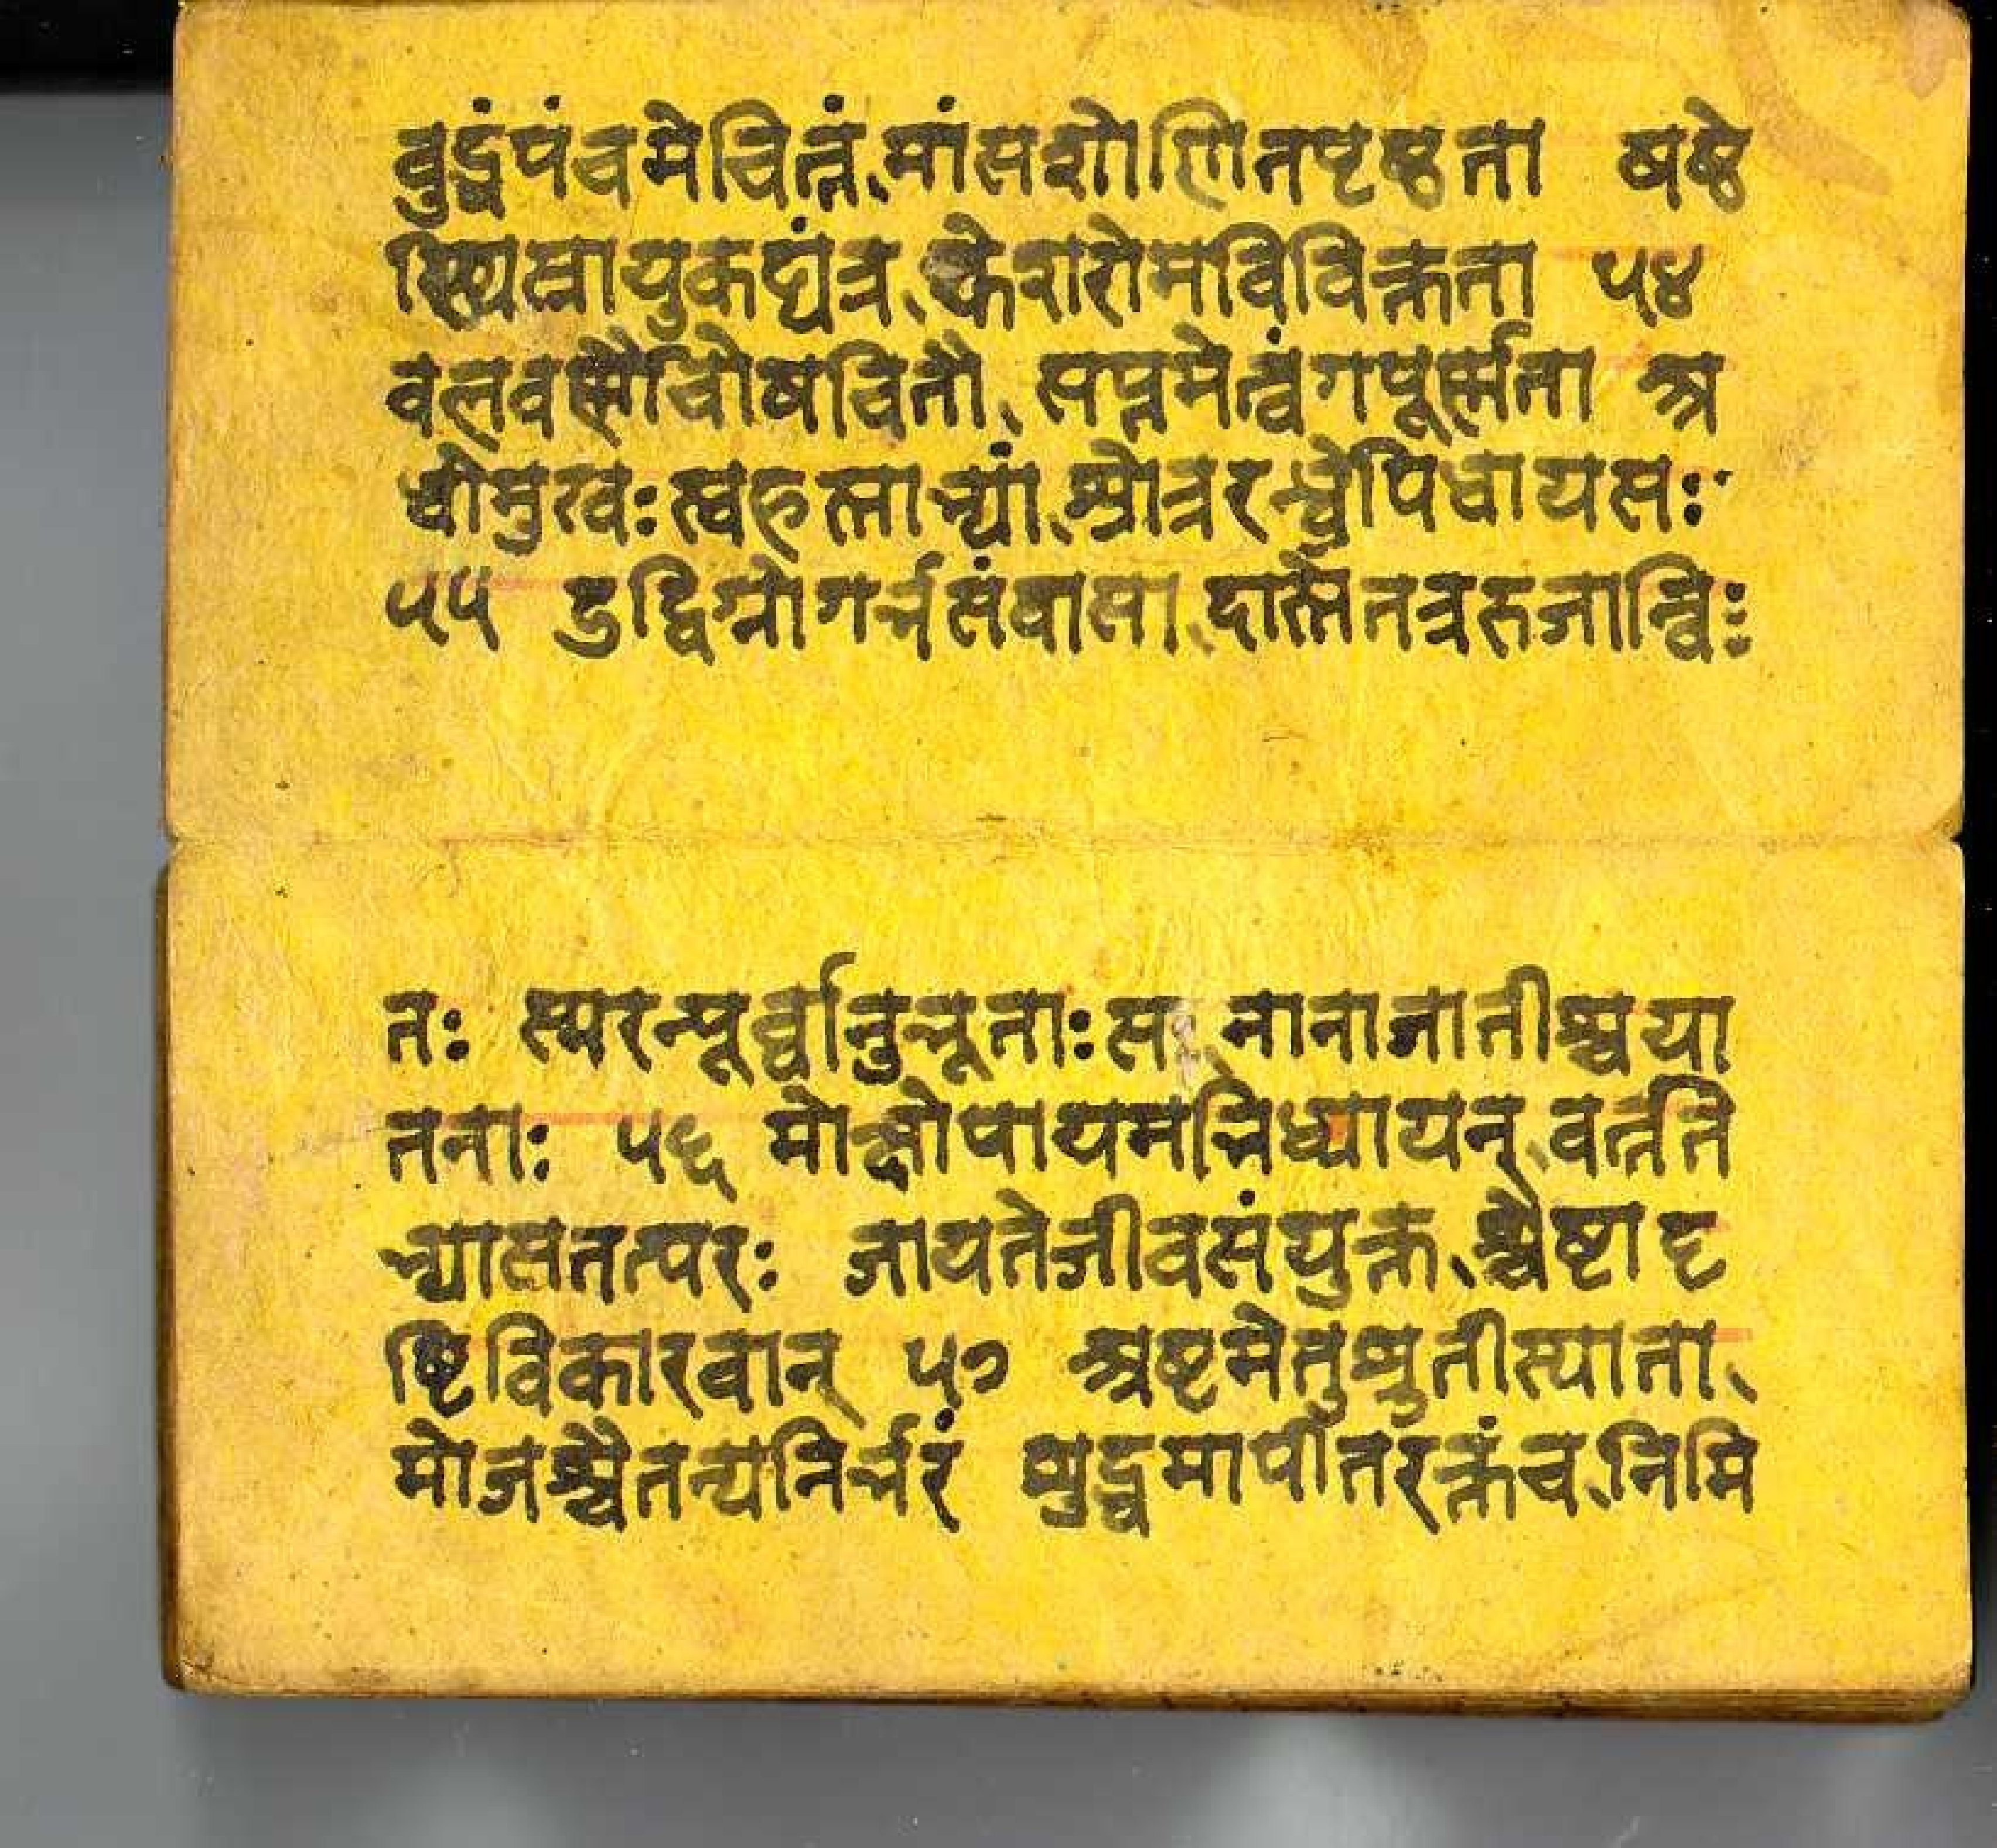 वुद्धंपंचमेचित्तं、मांसशोणितपृष्ठता षष्ठे
स्थिस्नायुकद्यंत्र、केशरोमविविक्तता ५४
वलवर्स्मौचोषचितौ、सप्तमेत्वंगपूर्स्मता अ
धोमुखःस्वहस्ताभ्यां、श्रोत्ररन्ध्रेपिधायसः
५५ उद्विग्नोगर्भसंवासा、दास्तेतत्ररुजान्वि
तः स्मरन्पूर्व्वानुभूताःस、नानाजातीश्चया
तनाः ५६ मोक्षोपायमभिध्यायन्、वर्त्तते
भ्यासतत्परः जायतेजीवसंयुक्त、श्चेष्टादृ
ष्टिविकारवान् ५७ अष्टमेतुश्रुतीस्याता、
मोजश्चैतन्यनिर्भरं शुद्धमापीतरक्तंच、निमि